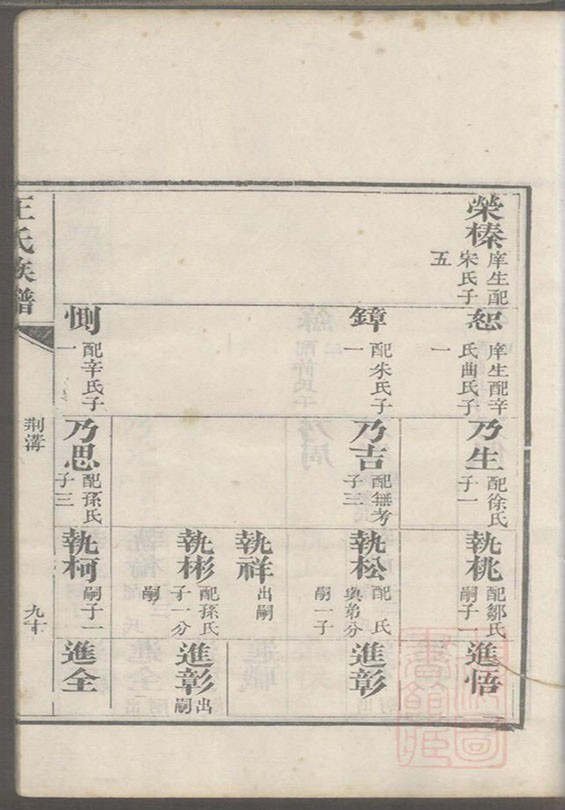 榮榛
庠生配
宋氏子
五
恕
庠生配辛
氏曲氏子
一
鐘
配朱氏子
一
惻
配辛氏子
一
乃生
配徐氏
子一
乃吉
配無考
子三
乃思
配孫氏
子三
執桃
配鄒氏
嗣子一
執松
配 氏
與弟分
嗣一子
執祥
出嗣
執彬
配孫氏
子一分
嗣
執柯
嗣子一
進悟
進彰
進彰
出
嗣
進全
王氏族譜
荆溝
九十